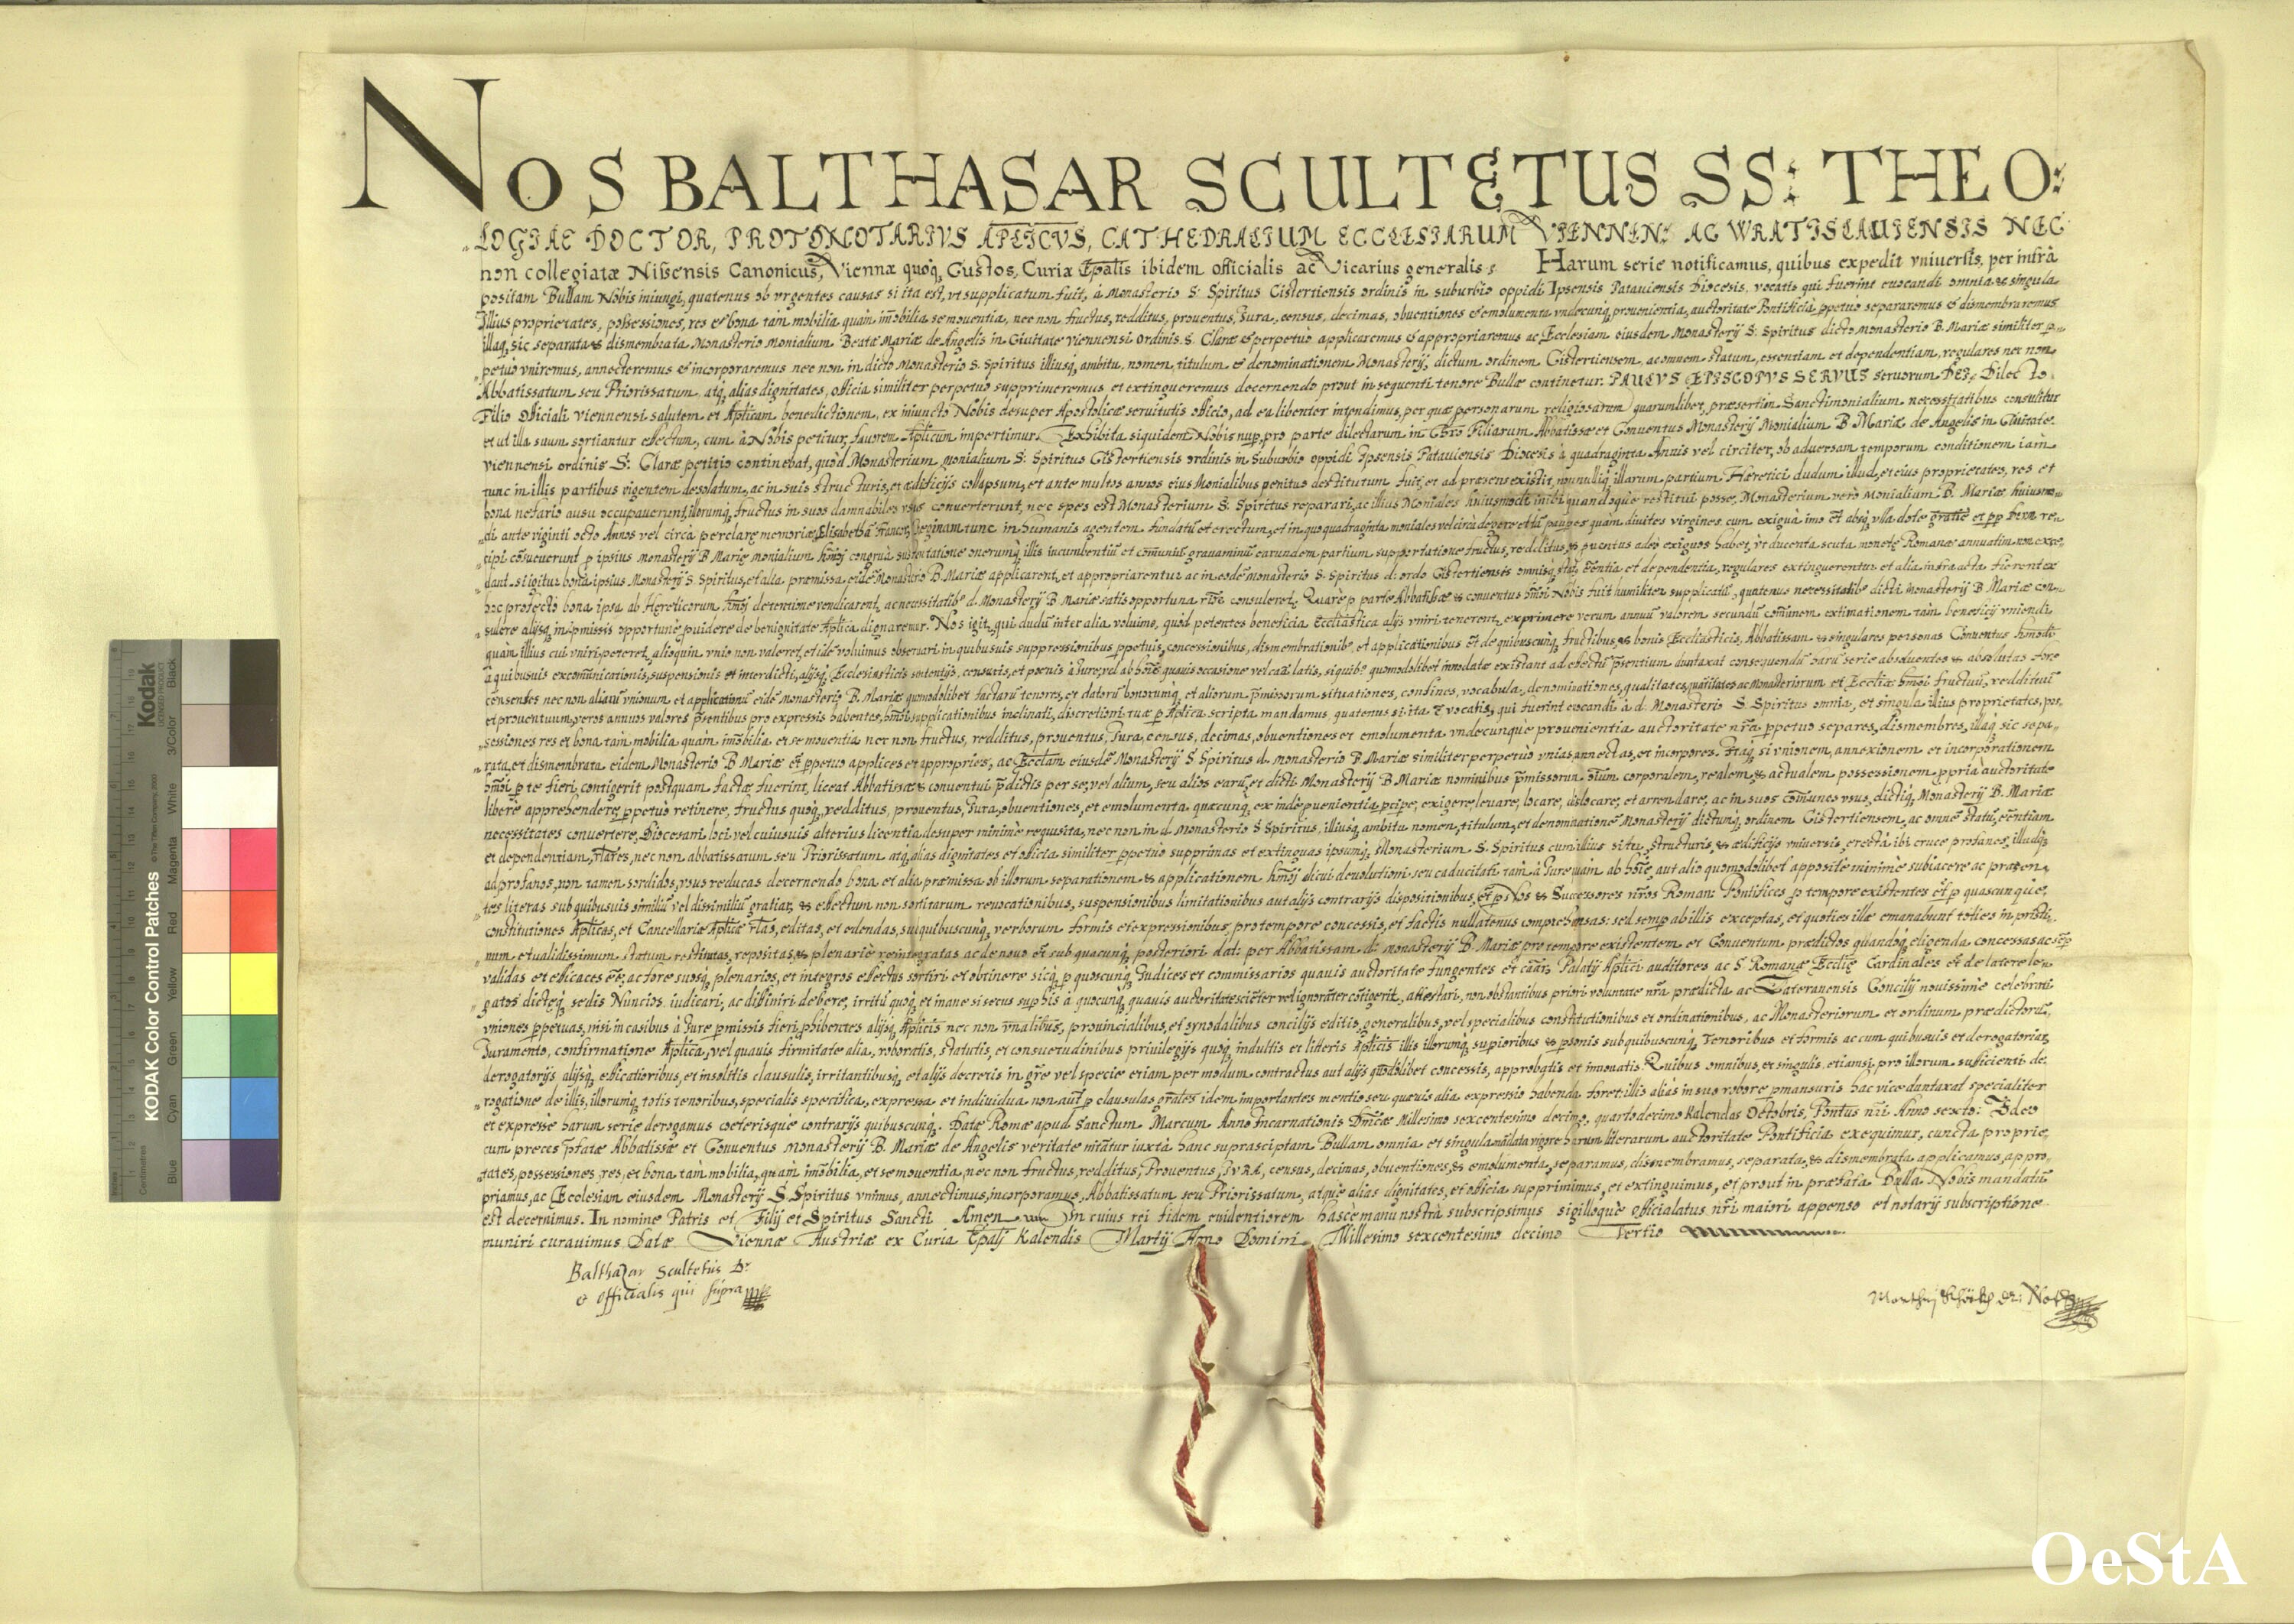 NOS BALTHASAR SCULTETUS SS: THEO:
LOGIAE DOCTOR, PROTONOTARIVS APLICVS, CATHEDRALIUM ECCLESIARUM VIENNEN: AC WRATISLAUIENSIS NEC
non collegiatæ Nissensis Canonicus, Viennæ quoq, Custos, Curiæ Epalis ibidem officialis ac Vicarius generalis: Harum serie notificamus, quibus expedit vniuersis, per infrà
positam Bullam Nobis iniungi, quatenus ob vrgentes causas si ita est, vt supplicatum fuit, à Monasterio S: Spiritus Cistertiensis ordinis in suburbio oppidi Ipsensis Patauiensis Diocesis, vocatis qui fuerint euocandi omnia & singula
Illius proprietates, possessiones, res & bona tàm mobilia quàm imobilia se mouentia, nec non fructus, redditus, prouentus, Jura, census, decimas, obuentiones & emolumenta vndecunq, prouenientia, auctoritate Pontificiâ, ppetuò separaremus & dismembraremus
illaq, sic separata & dismembrata Monasterio Monialium Beatæ Mariæ de Angelis in Ciuitate viennensi ordinis. S. Claræ & perpetuò applicaremus & appropriaremus ac Ecclesiam eiusdem Monasterij S: Spiritus dicto Monasterio B. Mariæ similiter p
petuò vniremus, annecteremus & incorporaremus nec non in dicto Monasterio S. Spiritus illiusq, ambitu, nomen, titulum & denominationem Monasterij, dictum ordinem Cistertiensem, ac omnem statum, essentiam et dependentiam, regulares nec non
Abbatissatum seu Priorissatum, atq, alias dignitates, officia similiter perpetuo supprimeremus et extingueremus decernendo prout in sequenti tenore Bullæ continetur. PAULVS EPISCOPVS SERVUS seruorum DEI, Dilecto
Filio Officiali viennensi salutem et Aplicam benedictionem, ex iniuncto Nobis desuper Apostolicæ seruitutis officio, ad ea libenter intendimus, per quæ personarum religiosarum quarumlibet, præsertim Sanctimonialium necessitatibus consulitur
et ut illa suum sortiantur effectum, cum à Nobis petitur, fauorem Aplicum impertimur. Exhibita siquidem Nobis nup, pro parte dilectarum in Chro Filiarum Abbatissæ et Conuentus Monasterij Monialium B Mariæ de Angelis in Ciuitate
viennensi ordinis S: Claræ petitio continebat, quòd Monasterium monialium S: Spiritus Cistertiensis ordinis in Suburbio oppidi Ipsensis Patauiensis Diocesis à quadraginta Annis vel circiter, ob aduersam temporum conditionem iàm
tunc in illis partibus vigentem desolatum, ac in suis structuris, et ædificijs collapsum, et ante multos annos eius Monialibus penitus destitutum fuit, et ad præsens existit, nonnulliq, illarum partium Hæretici dudum illud, et eius proprietates, res et
bona nefario ausu occupauerunt, illorumq, fructus in suos damnabiles vsus conuerterunt, nec spes est Monasterium S. Spiritus reparari, ac illius Moniales huiusmodi inibi quandoque restitui posse, Monasterium verò Monialium B. Mariæ huiusmo
di ante viginti octo Annos vel circa per claræ memoriæ, Elisabetha Francor, Reginam tunc in humanis agentem fundatu et erectum, et in quo quadraginta moniales vel circà degere et tu paupes quam diuites virgines, cum exiguâ imo et absq, vlla dote gratis et pp Deum re
cipi cosueuerunt p ipsius monasterij B Mariæ monialium hmoj congruâ sustentatione onerumq, illis incumbentiu et comuniu grauaminu earundem partium supportatione fructus, redditus, & puentus adeò exiguos habet, vt ducenta scuta monete Romanæ annuatim non exce
dant. si igitur bona ipsius Monasterij S. Spiritus, et alia præmissa eide Monastrio B. Mariæ applicarent, et appropriarentur ac in eodé monasterio S. Spiritus d: ordo Cistertiensis omnisq, sta, essentia et dependentia, regulares extinguerentur et alia infra dicta fierent ex
hoc profectò bona ipsa ab Hereticorum hmoj detentione vendicarent, ac necessitatibs d. Monasterij B. Mariæ satis opportuna rone consuleret, Quare p parte Abbatissæ & conuentus hmoi Nobis fuit humiliter supplicatu, quatenus necessitatibs dicti monasterij B Mariæ con
sulere alijsq, in pmissis opportune puidere de benignitate Aplica dignaremur. Nos igit, qui dudu inter alia voluimus, quod petentes beneficia Ecclesiastica alijs vniri tenerent, exprimere verum annuu valorem secundu comunem extimationem tàm beneficij vniendi
quam illius cui vniri peteret, alioquin vnio non valeret, et ide voluimus obseruari in quibusuis suppressionibus ppetuis, concessionibus, dismembrationib, et applicationibus et de quibuscunq, fructibus, & bonis Ecclesiasticis, Abbatissam & singulares personas Conuentus hmodi
à quibusuis excomunicationis, suspensionis et interdicti, alijsq, Ecclesiasticis sententijs, censuris, et poenis à Jure, vel ab hoie quauis occasione vel causa latis, siquibs quomodolibet innodatæ existant ad effectu psentium duntaxat consequendu haru serie absoluentes & absolutas fore
censentes nec non aliaru vnionum et applicationu eide monasterio B. Mariæ quomodolibet factaru tenores, et datoru bonorumq, et aliorum pmissorum situationes, confines, vocabula, denominationes, qualitates, quatitates ac Monasteriorum et Eccliæ hmoi fructuu, reddituu
et prouentuum, veros annuos valores psentibus pro expressis habentes, hmoi supplicationibus inclinati, discretioni tuæ p Aplica scripta mandamus, quatenus si ita e vocatis, qui fuerint euocandi à d. Monasterio S. Spiritus omnia, et singula illius proprietates, pos
sessiones res et bona tàm mobilia quàm imobilia et se mouentia nec non fructus, redditus, prouentus, Jura, census, decimas, obuentiones et emolumenta vndecunque prouenientia auctoritate nra ppetuo separes, dismembres, illaq, sic sepa
rata, et dismembrata eidem Monasterio B Mariæ et ppetuo applices et appropries, ac Ecclam eiusde Monasterij S Spiritus d. monasterio B. Mariæ similiter perpetuò vnias, annectas, et incorpores. Itaq, si vnionem, annexionem et incorporationem
hmoi p te fieri contigerit postquam factæ fuerint, liceat Abbatissæ & conuentui pdictis per se, vel alium, seu alios earu, et dicti Monasterij B Mariæ nominibus pmissorum oium corporalem, realem, & actualem possessionem ppria auctoritate
liberè apprehendere, ppetuò retinere, fructus quoq, redditus, prouentus, Jura, obuentiones, et emolumenta quæcunq, ex inde puenientia pcipe, exigere, leuare, locare, dislocare, et arrendare, ac in suos comunes vsus, dictiq, Monasterij B. Mariæ
necessitates conuertere, Diocesani loci vel cuiusuis alterius licentia desuper minimè requisita, nec non in d. Monasterio S Spiritus, illiusq, ambitu nomen, titulum, et denominatione Monasterij dictunq, ordinem Cistertiensem, ac omne statu, essentiam
et dependentiam, rlares, nec non abbatissatum seu Priorissatum atq, alias dignitates et officia similiter ppetuò supprimas et extinguas ipsumq, Monasterium S. Spiritus cum illius situ, structuris, & ædificijs vniuersis, erectâ ibi cruce profanes, illudq,
ad profanos, non tamen sordidos, vsus reducas decernendo bona et alia præmissa ob illorum separationem & applicationem hmoj dicui deuolutioni seu caducitati tàm à Jure quàm ab hoie, aut alio quomodolibet apposite minimè subiacere ac præsen
tes literas sub quibusuis similiu vel dissimiliu gratiar, & effectum non sortitarum reuocationibus, suspensionibus limitationibus aut alijs contrarijs dispositionibus, et p Nos & Successores nros Roman: Pontifices p tempore existentes et p quascunque
constitutiones Aplicas, et Cancellariæ Aplicæ rlas, editas, et edendas, sub quibuscunq, verborum formis et expressionibus, pro tempore concessis, et factis nullatenus comprehensas: sed semp ab illis exceptas, et quoties illæ emanabunt toties in pristi
num et ualidissimum statum restitutas, repositas, & plenariè reintegratas ac de nouo et sub quacunq, posteriori dat: per Abbatissam d: monasterij B. Mariæ pro tempore existentem et Conuentum prædictos quandoq, eligenda concessas ac semp
validas et efficaces ee, ac fore suosq, plenarios, et integros effectus sortiri et obtinere sicq, p quoscunq, Judices et commissarios quauis auctoritate fungentes et cãar, Palatij Aplici auditores ac S. Romanæ Ecclie Cardinales et de latere le
gatos dictæq, sedis Nuncios, iudicari, ac diffiniri debere, irritu quoq, et inane si secus sup his à quocunq, quauis auctoritate sciéter vel ignoranter cotigerit, attestari, non obstantibus priori voluntate nra prædicta ac Lateranensis Concilij nouissimè celebrati
vniones ppetuas, nisi in casibus à Jure pmissis fieri, phibentes alijsq, Aplicis nec non vnalibus, prouincialibus, et synodalibus concilijs editis, generalibus, vel specialibus constitutionibus et ordinationibus, ac Monasteriorum et ordinum prædictoru,
Juramento, confirmatione Aplica, vel quauis firmitate alia, roboratis, statutis, et consuetudinibus priuilegijs quoq, indultis et litteris Aplicis illis illorumq, supioribus & psonis sub quibuscunq, tenoribus et formis ac cum quibusuis et derogatoriar
derogatorijs alijsq, efficatioribus, et insolitis clausulis, irritantibusq, et alijs decretis in gñe vel specie etiam per modum contractus aut alijs quodolibet concessis, approbatis et innouatis. Quibus omnibus, et singulis, etiamsi pro illorum sufficienti de
rogatione de illis, illorumq, totis tenoribus, specialis specifica, expressa et indiuidua non aut p clausulas gñales idem importantes mentio seu quæuis alia expressio habenda foret illis aliàs in suo robore pmansuris hac vice dantaxat specialiter
et expressè harum serie derogamus cæterisque contrarijs quibuscunq,. Datæ Romæ apud Sanctum Marcum Anno Incarnationis Dnicæ Millesimo sexcentesimo decimo, quartodecimo Kalendas Octobris, Pontus nri Anno sexto: Ideo
cum preces pfatæ Abbatissæ et Conuentus monasterij B. Mariæ de Angelis veritate nitatur iuxtà hanc suprasciptam Bullam omnia et singula mandata vigore harum literarum auctoritate Pontificia exequimur, cuncta proprie
tates, possessiones, res, et bona tàm mobilia, quàm imobilia, et se mouentia, nec non fructus, redditus, Prouentus, IVRA, census, decimas, obuentiones, & emolumenta, separamus, dismembramus, separata, & dismembrata applicamus, appro
priamus, ac Ecclesiam eiusdem Monasterij S. Spiritus vnimus, annectimus, incorporamus, Abbatissatum seu Priorissatum, atque alias dignitates, et officia supprimimus, et extinguimus, et prout in præfata Bulla Nobis mandatu
est decernimus. In nomine Patris et Filij et Spiritus Sancti Amen In cuius rei fidem euidentiorem hasce manu nostrâ subscripsimus sigilloque Officialatus nri maiori appenso et notarij subscriptione
muniri curauimus Datæ Viennæ Austriæ ex Curia Epalj Kalendis Martij Anno Domini Millesimo sexcentesimo decimo Tertio
Balthazar Scultetus Dr
& Officialis qui supra
OeStA
KODAK Color Control Patches
Kodak
Blue Cyan Green Yellow Red Magenta White 3/Color Black